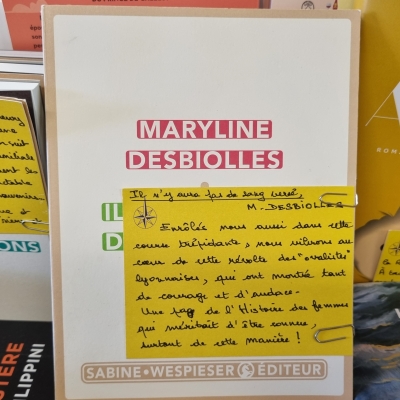 MARYLINE
DESBIOLLES
IL
D
Il n'y aura pas de sang versé,
M. DESBIOLLES
Enrôlés nous aussi dans cette
course trépidante, nous vibrons au
cœur de cette révolte des "ovalistes"
lyonnaises, qui ont montré tant
de courage et d'audace.
Une page de l'Histoire des femmes
qui méritait d'être connue,
surtout de cette manière !
SABINE • WESPIESER ÉDITEUR
ONS
STÈRE
LIPPINI
A
ROM